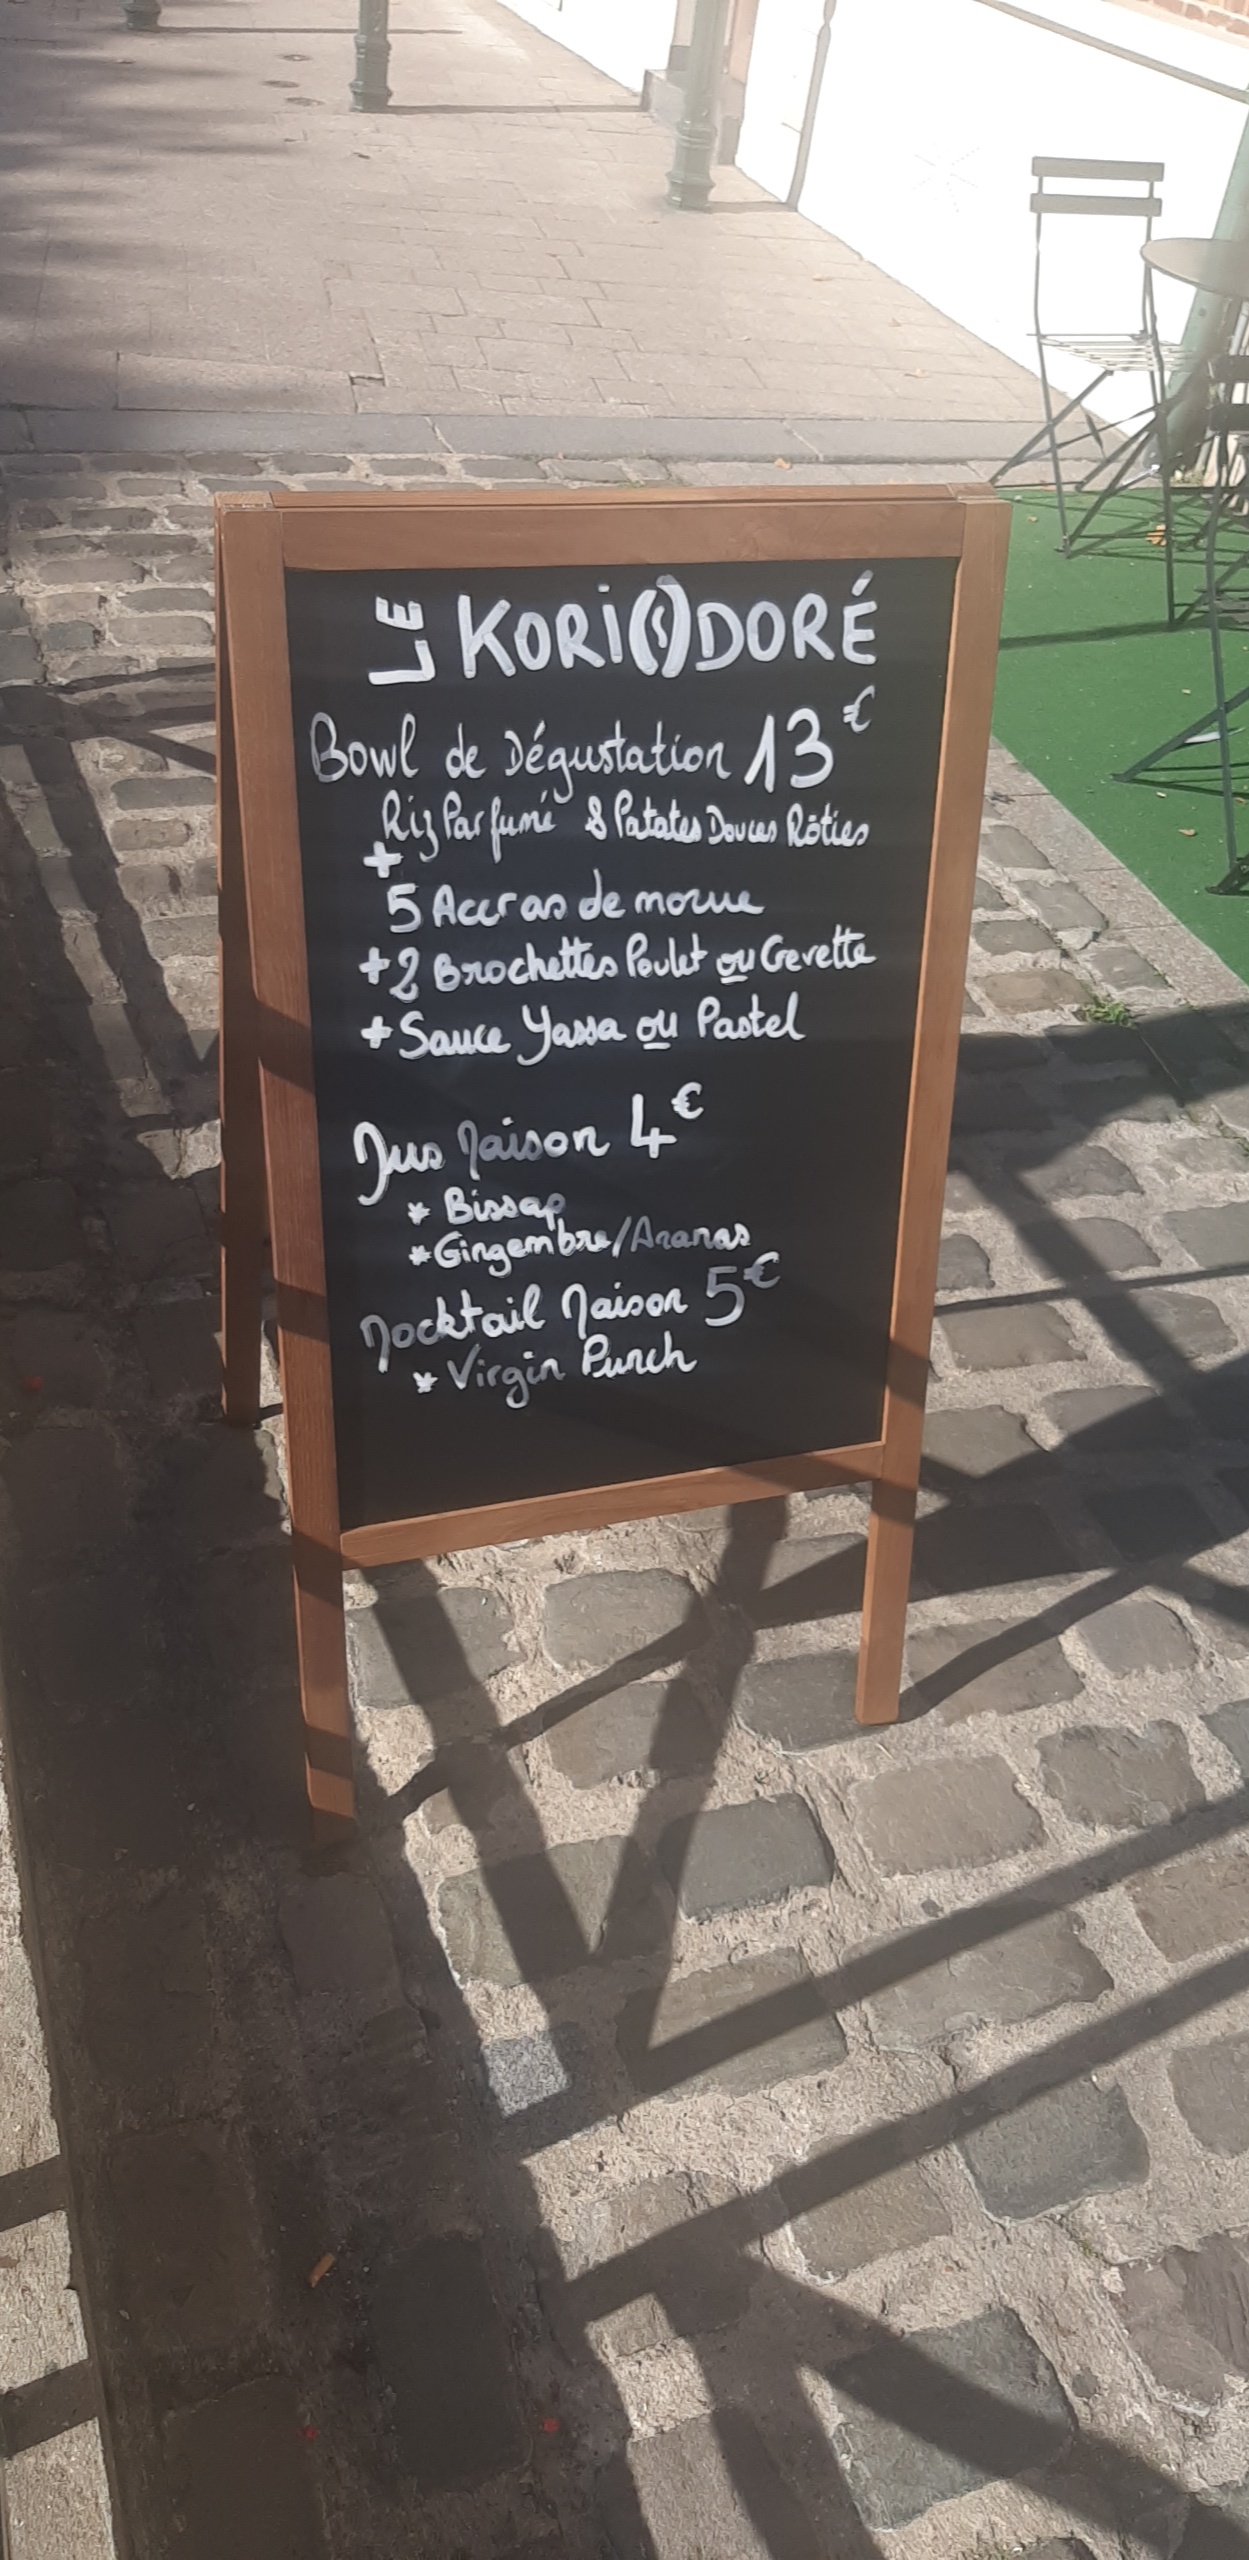 LE KORI DORÉ
Bowl de Dégustation 13€
Riz Parfumé & Patates Douces Rôties
+
5 Accras de morue
+2 Brochettes Poulet ou Crevette
+ Sauce Yassa ou Pastel
Jus Maison 4€
* Bissap
* Gingembre/Ananas
Mocktail Maison 5€
* Virgin Punch